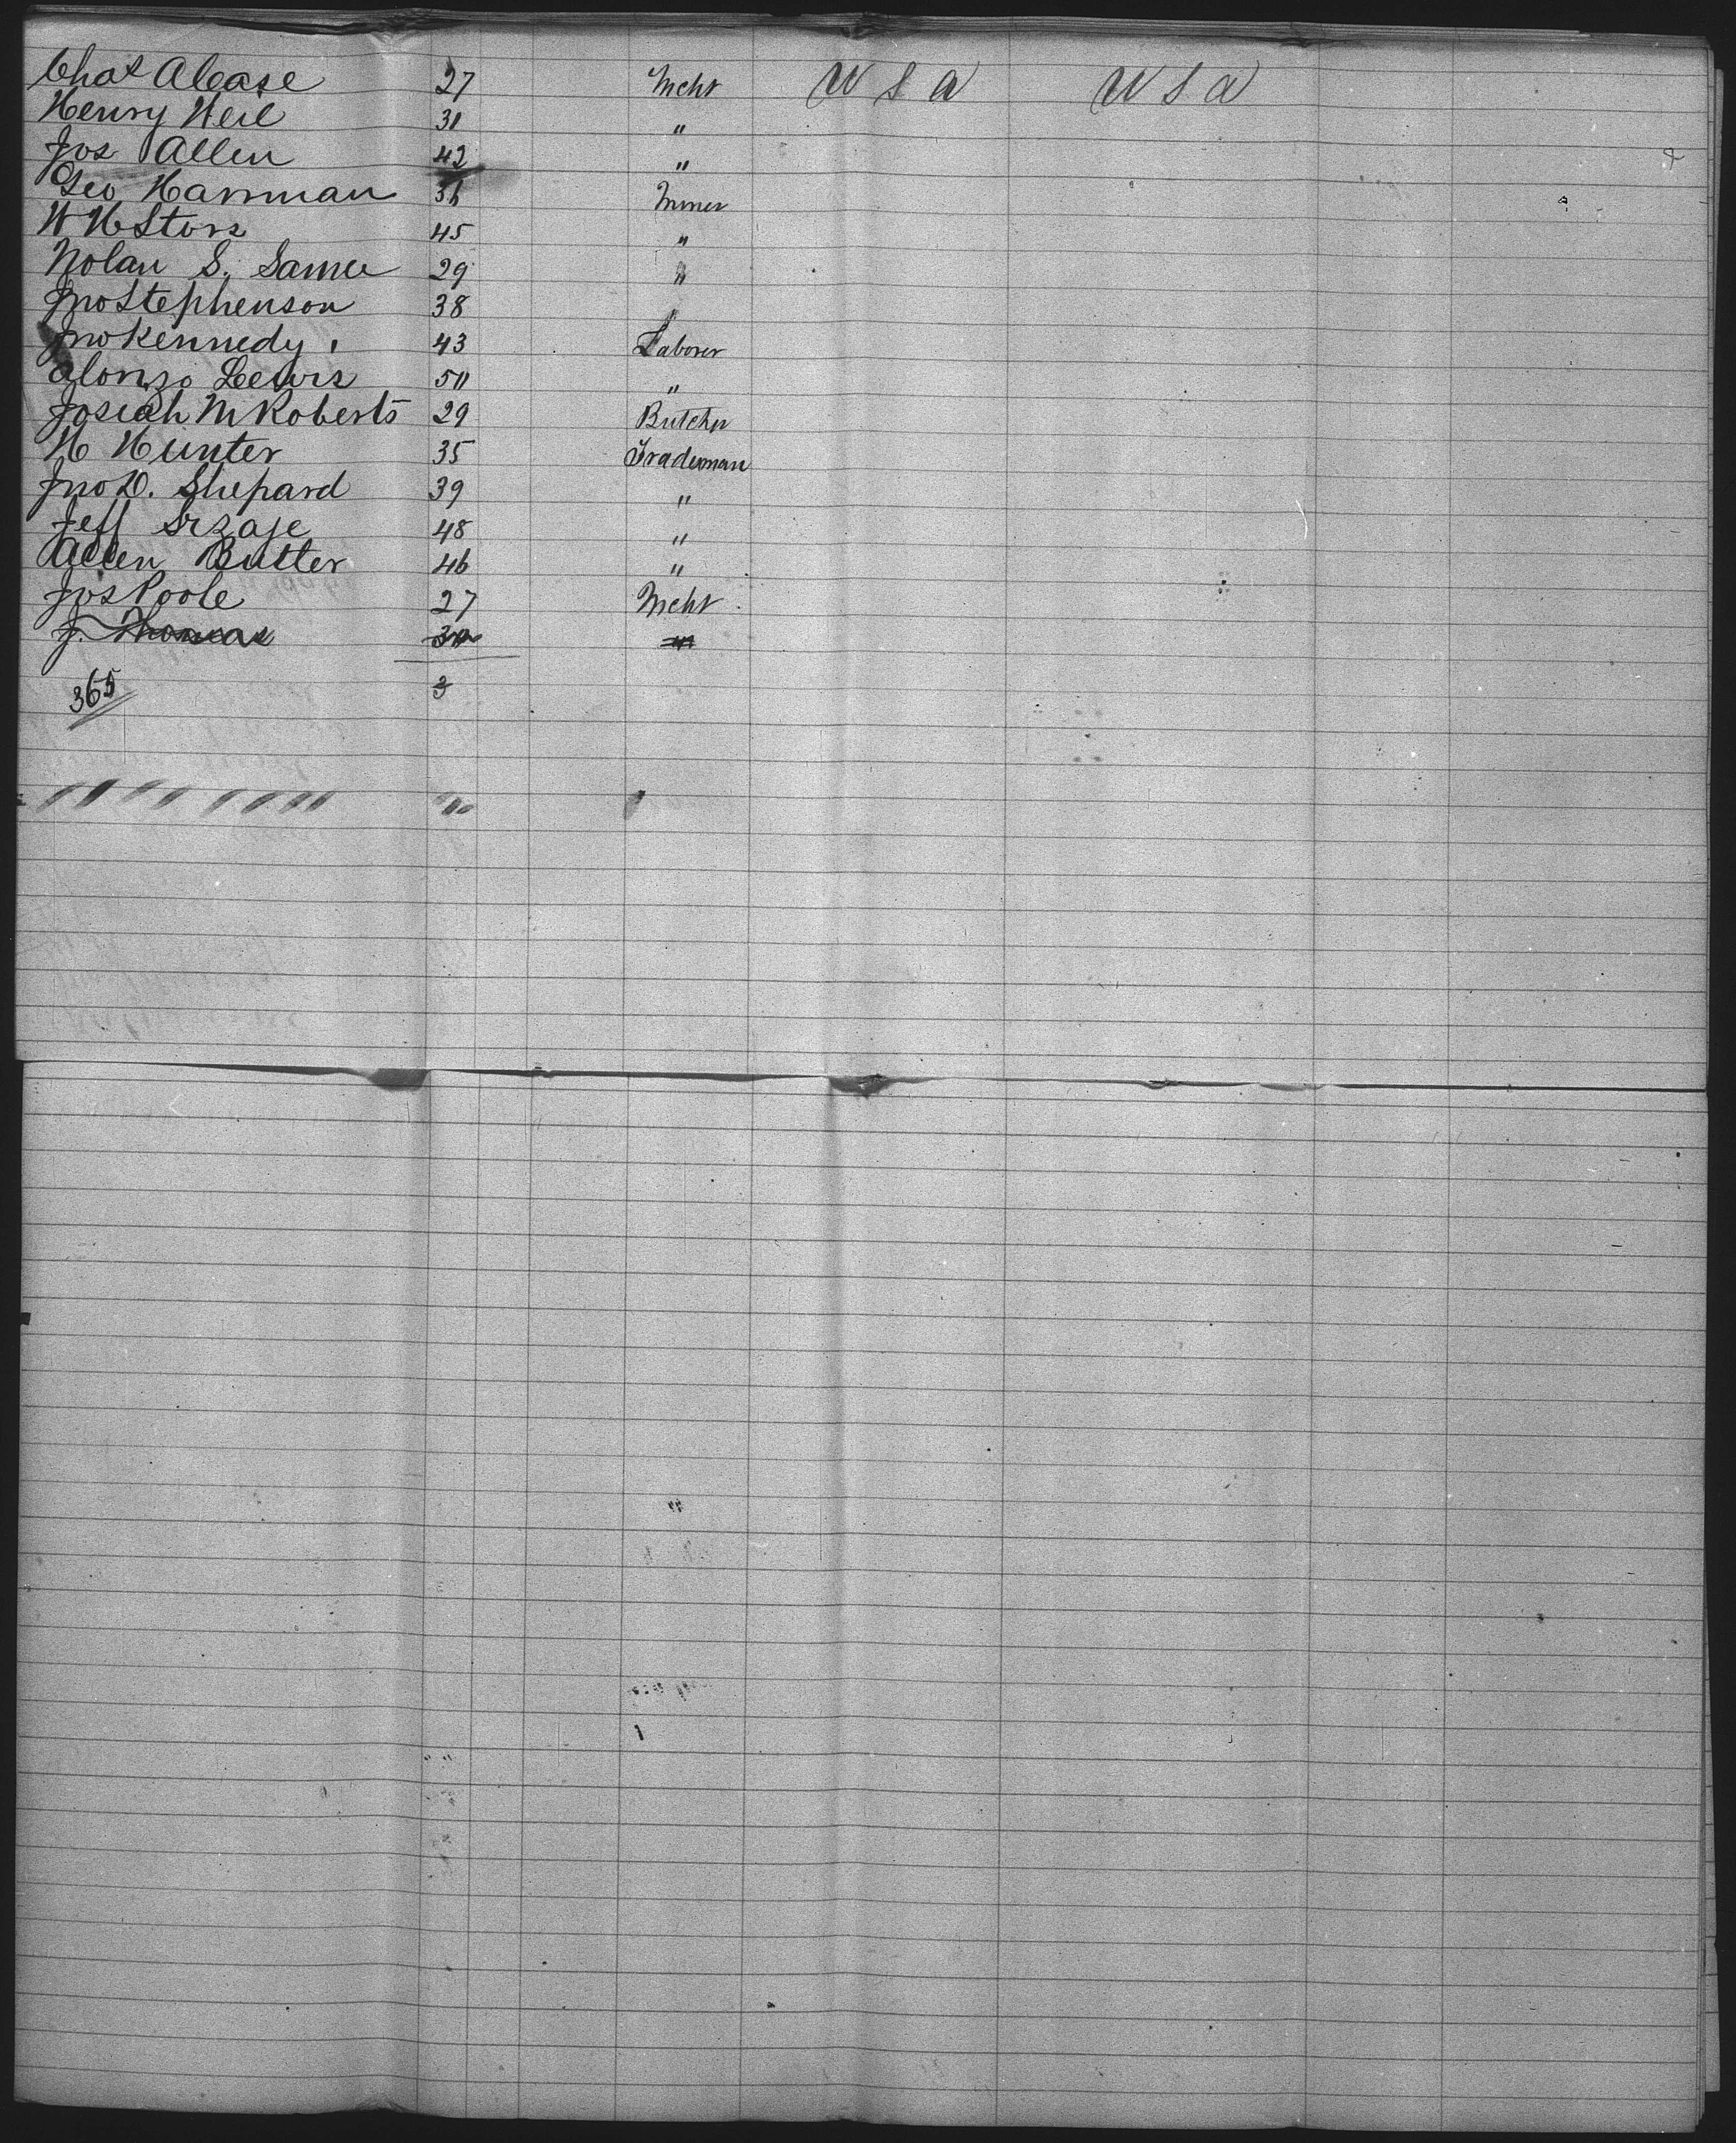 Chas A Case 27 Mcht U S A U S A
Henry Weil 31 "
Jos Allen 42 "
Geo Harriman 36 Miner
W H Stors 45 "
Nolan S. 29 "
Jno Stephenson 38
Jno Kennedy 43 Laborer
Alonzo Lewis 50 "
Josiah M Roberts 29 Butcher
H Hunter 35 Trademan
Jno D. Shepard 39 "
Jeff 48 "
Allen Butler 46 "
Jos Poole 27 Mcht
J. Thomas 30 "
365 3